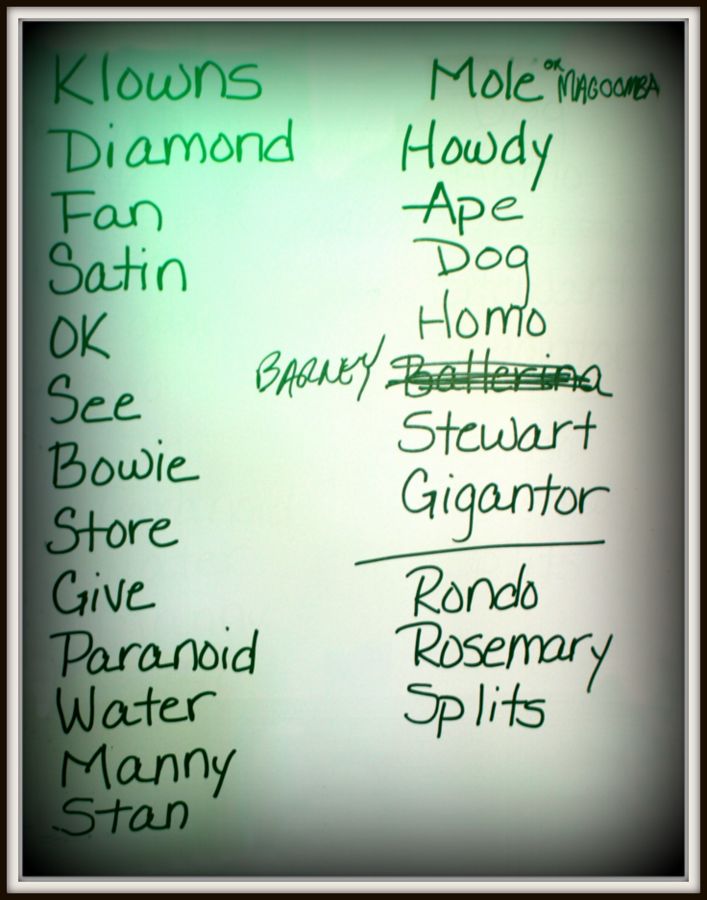 Klowns
Diamond
Fan
Satin
OK
See
Bowie
Store
Give
Paranoid
Water
Manny
Stan
Mole or MAGOOMBA
Howdy
Ape
Dog
Homo
BARNEY Ballerina
Stewart
Gigantor
Rondo
Rosemary
Splits